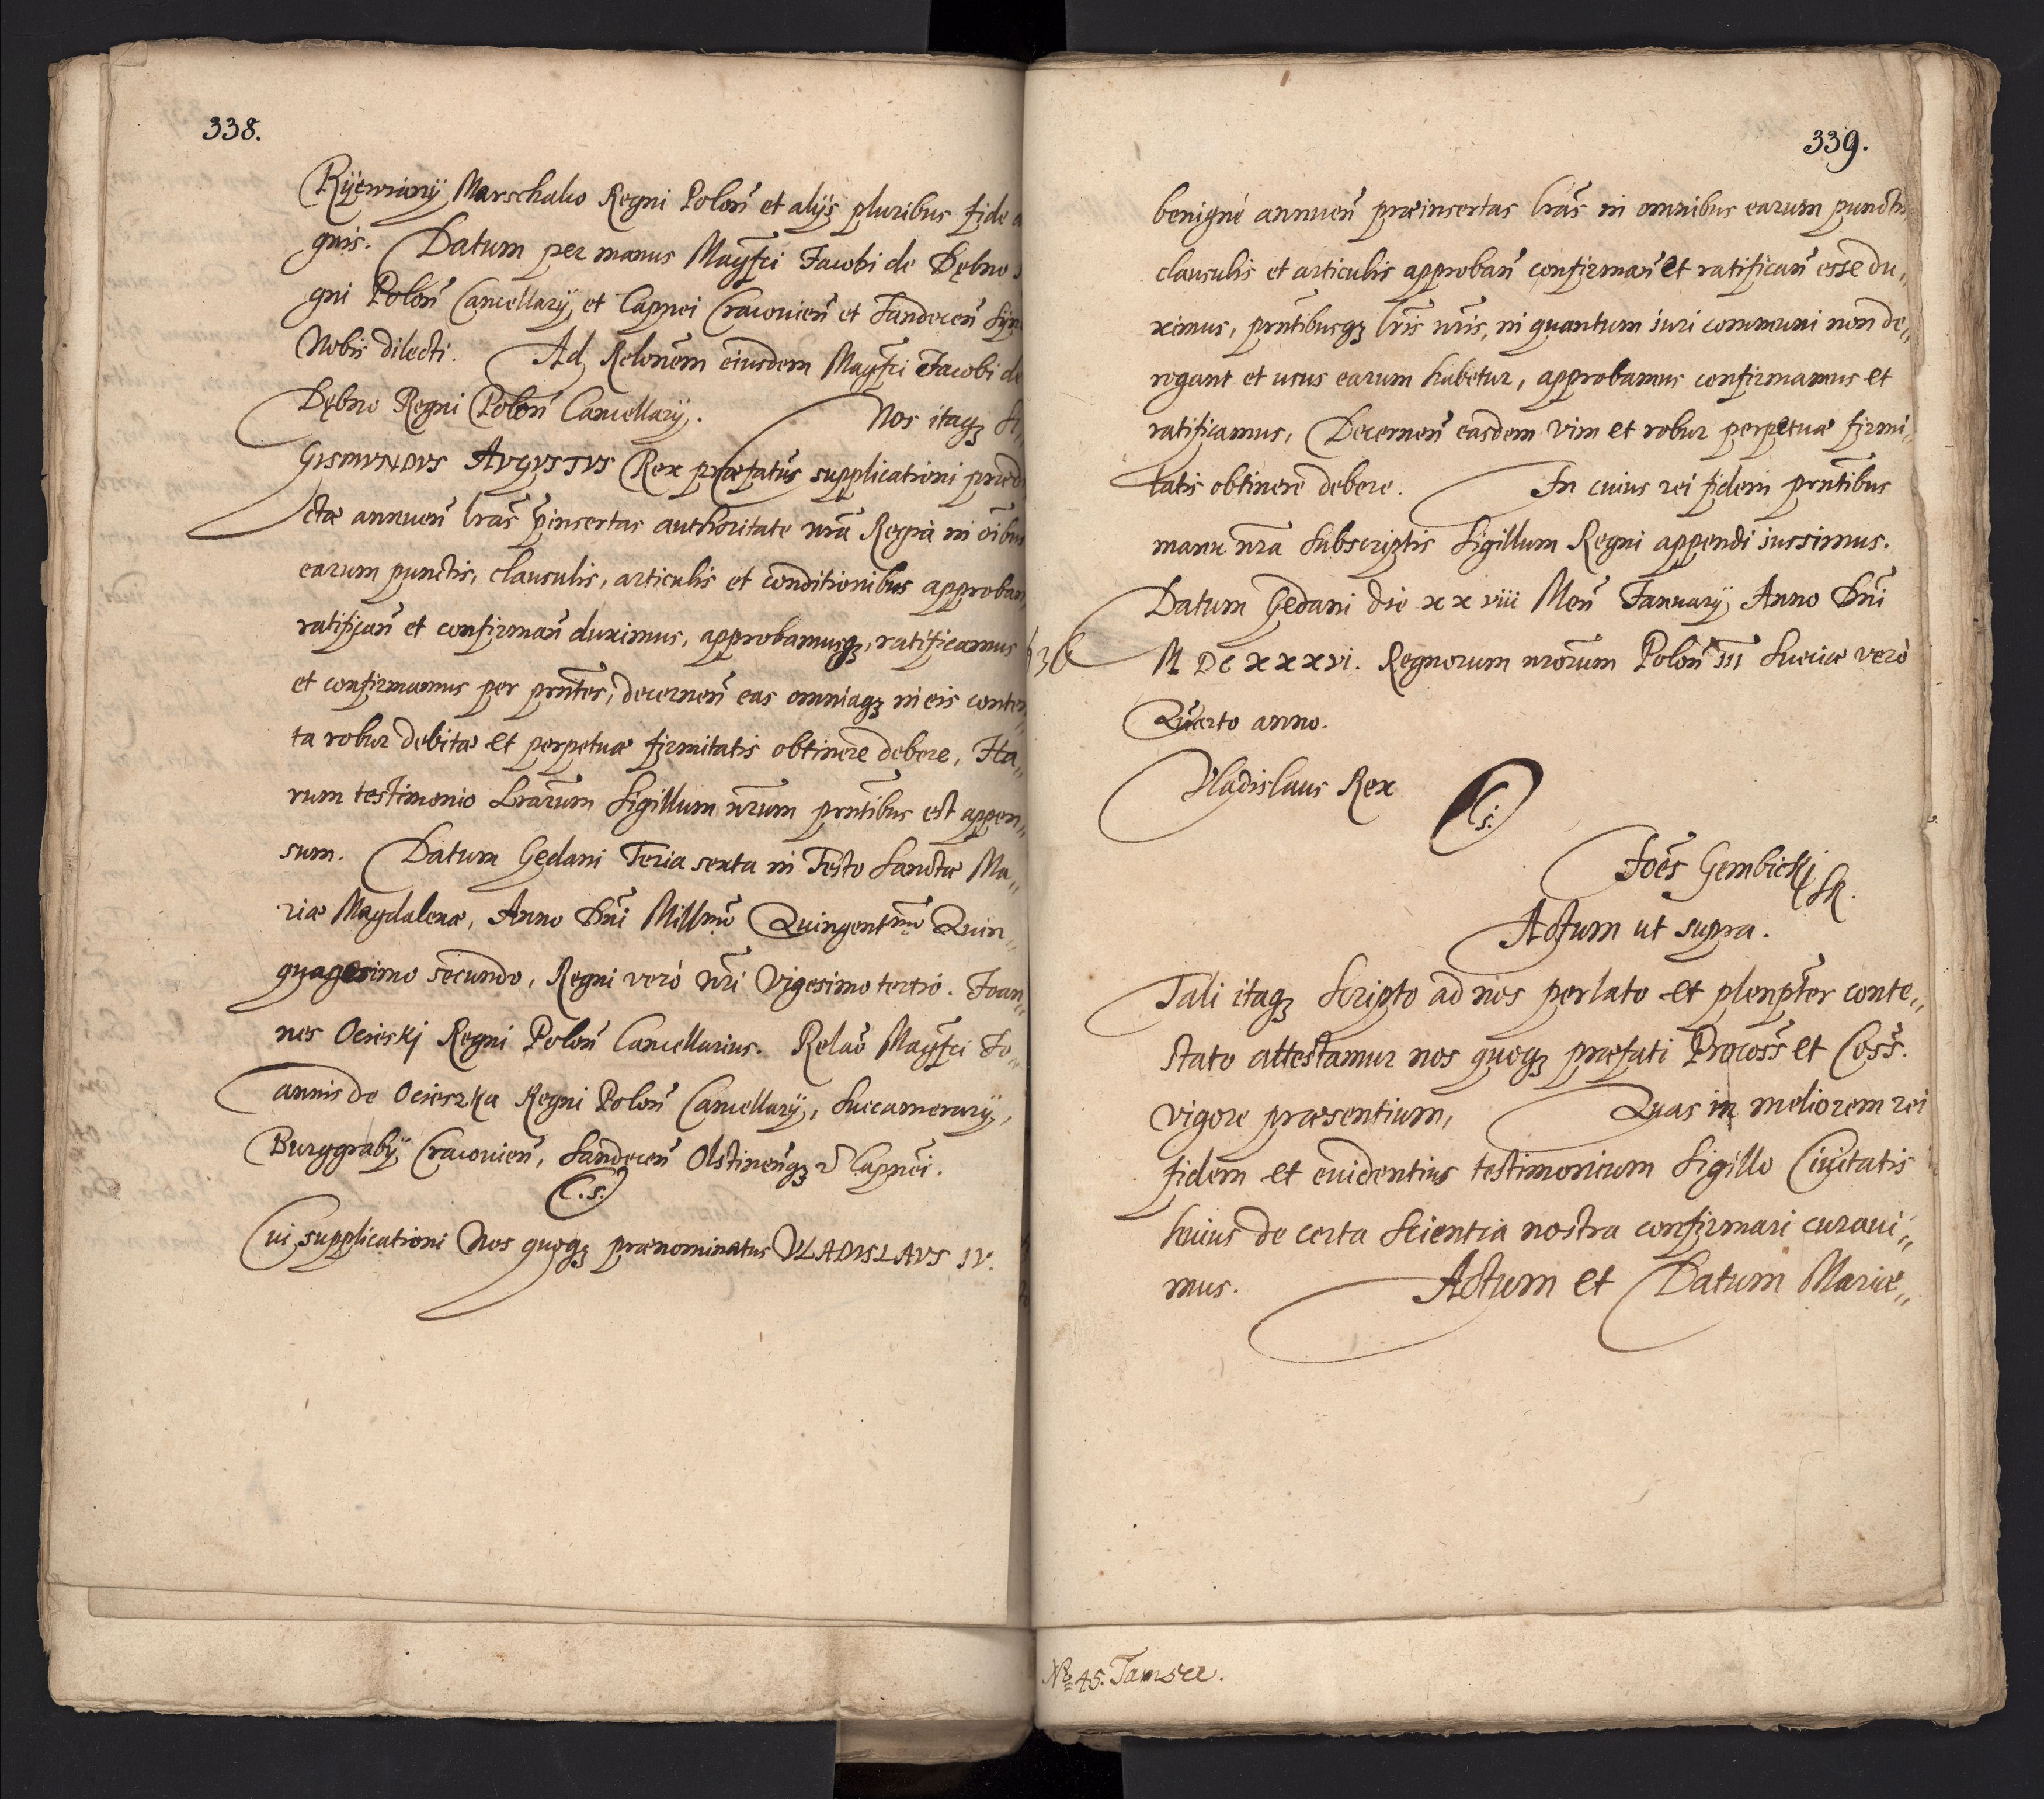 338.
Rÿtwianÿ Marschalco Regni Polon̄ et alÿs pluribus fide d
gnis. Datum per manus Mag̃fci Jacobi de Dębno
gni Polon̄ Cancellarÿ, et Capnei Cracouien̄ et Sandecen̄ Syn
Nobis dilecti. Ad Relonem eiusdem Mag̃fci Jacobi de
Dębno Regni Polon̄ Cancellarÿ. Nos itaqȝ Si„
GISMVNDVS AVGVSTVS Rex præfatus supplicationi præd
ctæ annuen̄ lrãs p̄insertas authoritate nrã Regia in oĩbus
earum punctis, clausulis, articulis et conditionibus approban̄
ratifican̄ et confirman̄ duximus, approbamusqȝ, ratificamus
et confirmamus per prñtes, decernen̄ eas omniaqȝ in eis conten„
ta robur debitæ et perpetuæ firmitatis obtinere debere, Ha„
rum testimonio Lrãrum Sigillum nrũm prñtibus est appen„
sum. Datum Gedani Feria sexta in Festo Sanctæ Ma„
riæ Magdalenæ, Anno Dñi Millmo Quingentmo Quin„
quagesimo secundo, Regni verò nrĩ Vigesimo tertio. Joan„
nes Ocieskj Regni Polon̄ Cancellarius. Relaõ Mag̃fci Jo„
annis de Ocieszka Regni Polon̄ Cancellarÿ, Succamerarÿ,
Burggrabÿ Cracouien̄, Sandecen̄ Olstinen̄qȝ Capnei.
L.s.
Cui supplicationi Nos quoqȝ prænominatus VLADISLAVS IV.
339.
benignè annuen̄ præinsertas lrãs in omnibus earum punctis
clausulis et articulis approban̄ confirman̄ et ratifican̄ esse du„
ximus, prñtibusqȝ lrĩs nrĩs, in quantum iuri communi non de„
rogant et usus earum habetur, approbamus confirmamus et
ratificamus, Decernen̄ easdem vim et robur perpetuæ firmi„
tatis obtinere debere. In cuius rei fidem prñtibus
manu nrã Subscriptis Sigillum Regni appendi iussimus.
Datum Gedani die xxviii Men̄ Januarÿ Anno Dñi
M DC XXXVI. Regnorum nrõrum Polon̄ III Sueciæ verò
Quarto anno.
Vladislaus Rex
L.s.
Joẽs Gembickj
Actum ut supra.
Tali itaqȝ Scripto ad nos perlato et plenp̃ter conte„
stato attestamur nos quoqȝ præfati Procoss̃ et Coss̃.
vigore præsentium, Quas in meliorem rei
fidem et euidentius testimonium Sigillo Ciuitatis
huius de certa Scientia nostra confirmari curaui„
mus. Actum et Datum Mariæ„
No 45. Tamsee.